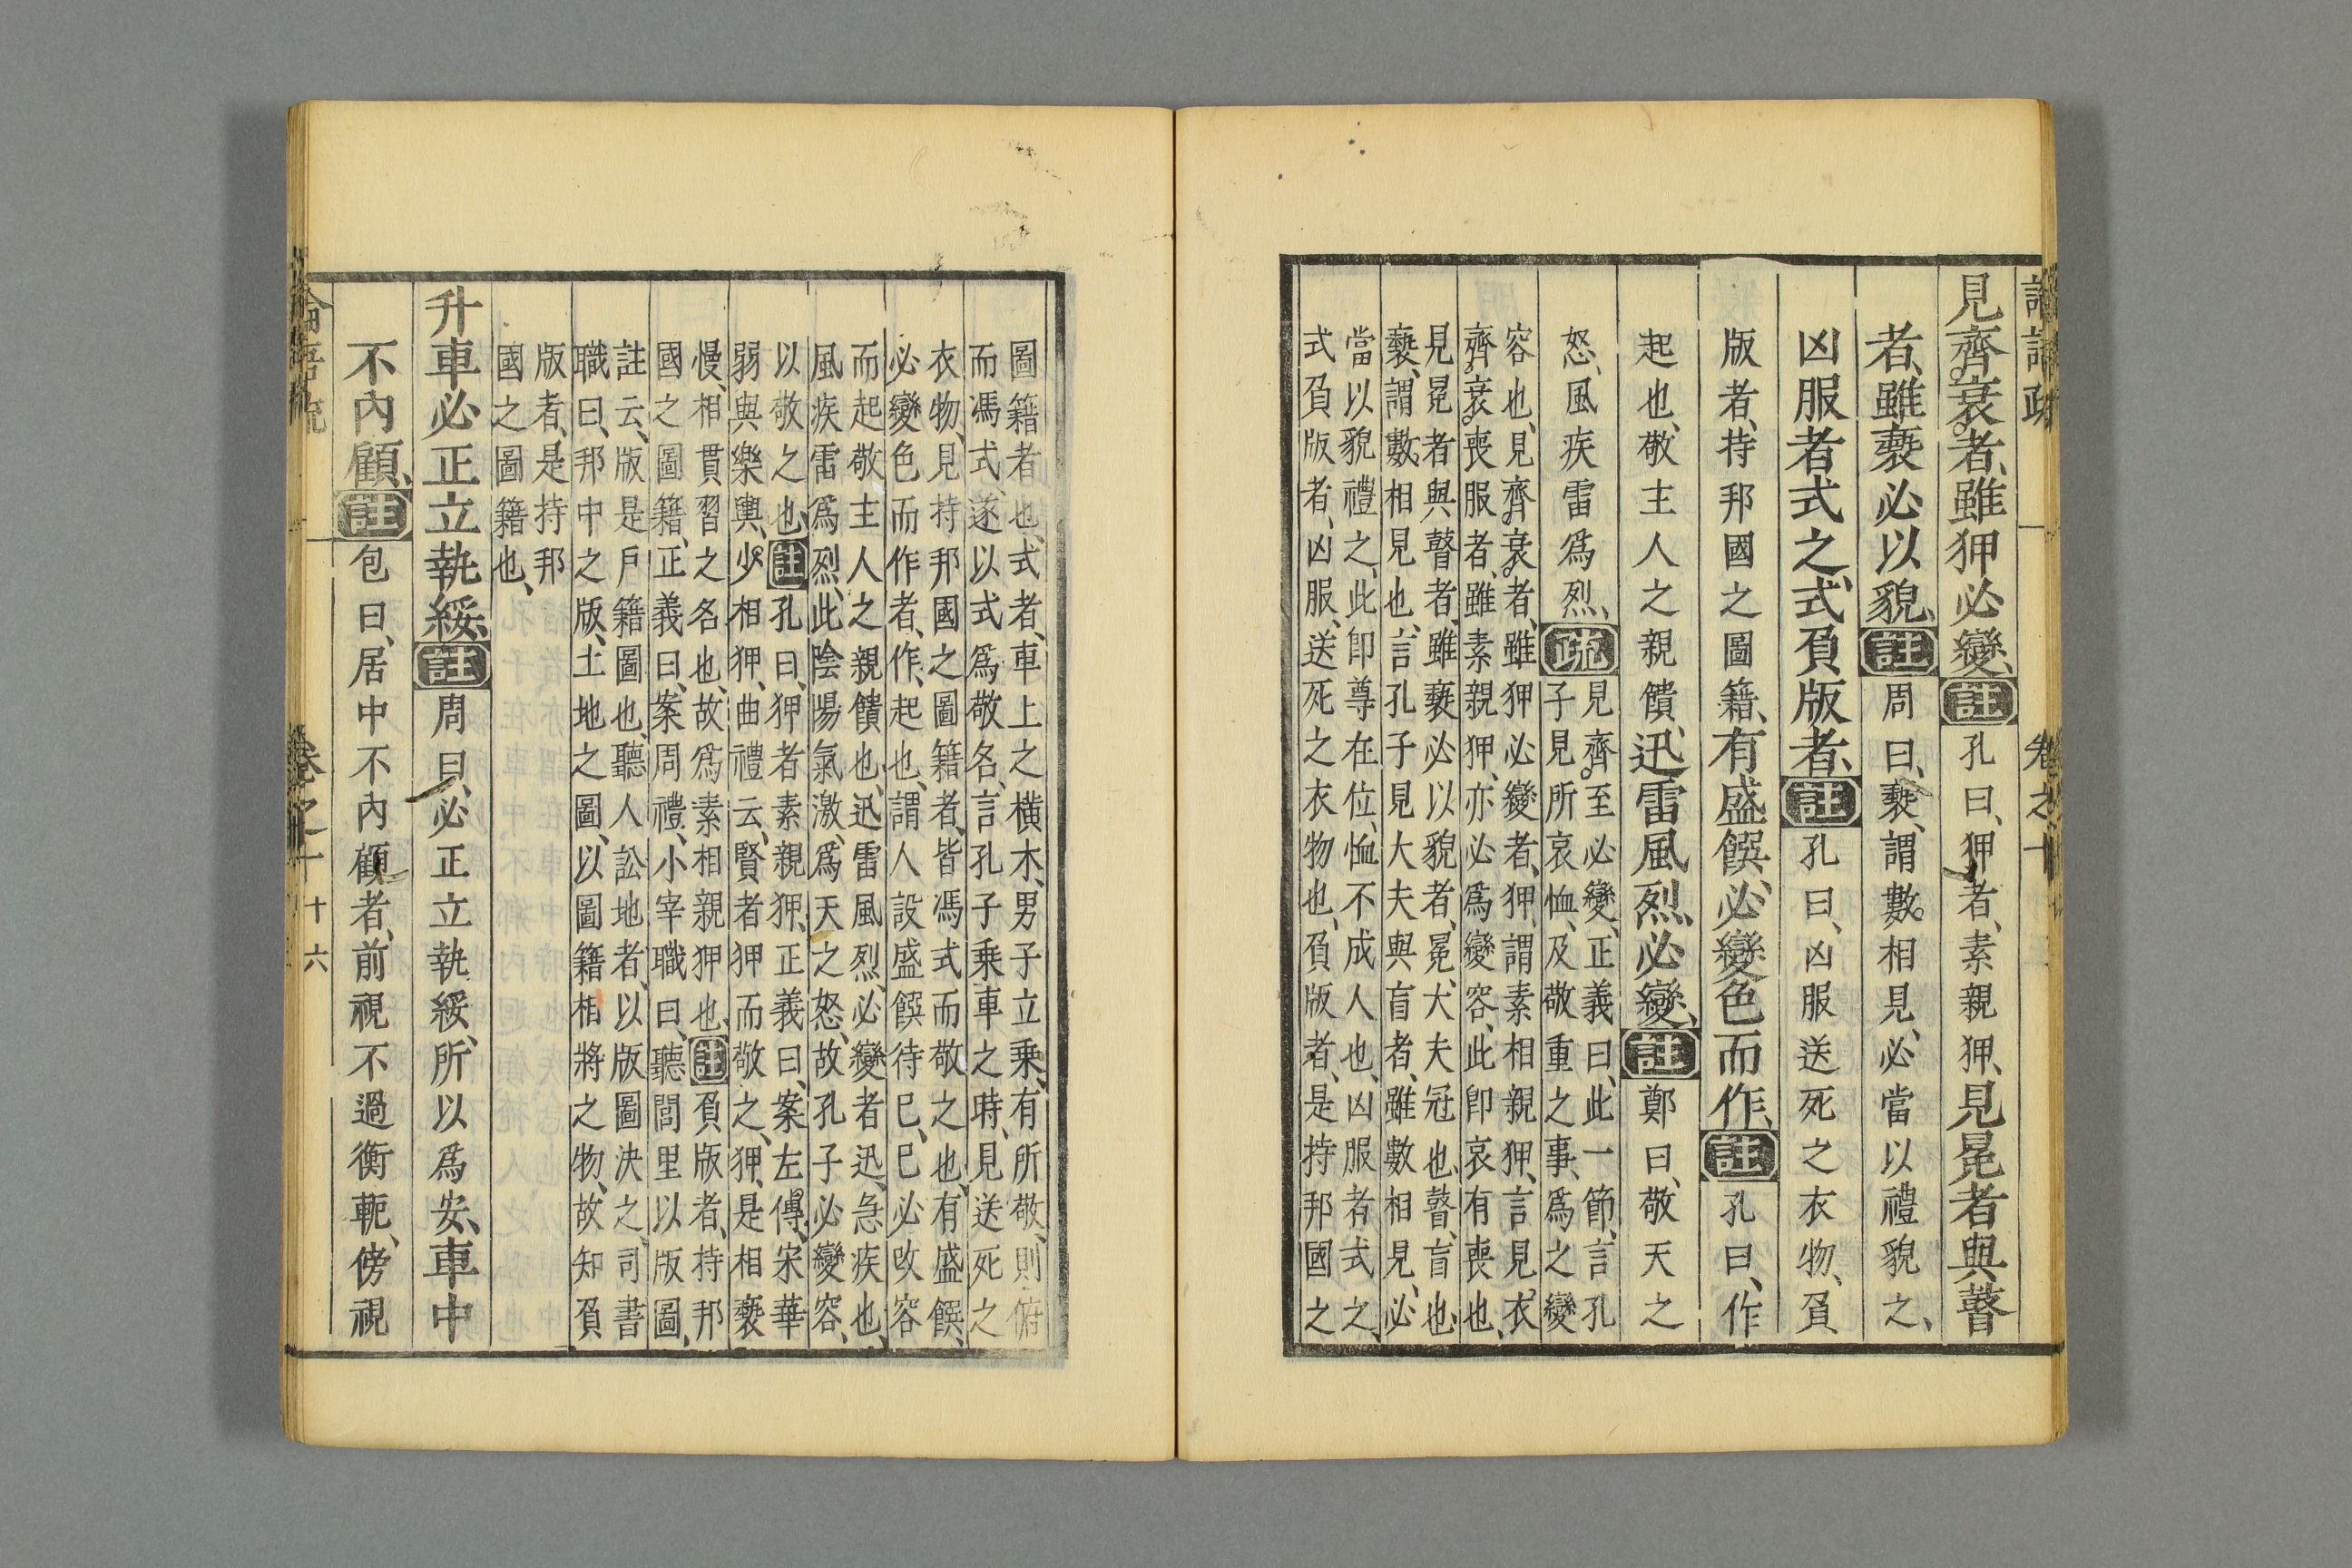 卷之十
見齊衰者、雖狎必變、註孔曰、狎者、素親狎、見冕者與瞽
者、雖褻必以貌、註周曰、褻、謂數相見、必當以禮貌之、
凶服者式之、式負版者、註孔曰、凶服送死之衣物、負
版者、持邦國之圖籍、有盛饌、必變色而作、註孔曰、作
起也、敬主人之親饋、迅雷風烈、必變、註鄭曰、敬天之
怒、風疾雷爲烈、疏
見齊至必變、正義曰、此一節、言孔
子見所哀恤、及敬重之事、爲之變
容也、見齊衰者、雖狎必變者、狎、謂素相親狎、言見衣
齊衰喪服者、雖素親狎、亦必爲變容、此卽哀有喪也、
見冕者與瞽者、雖褻必以貌者、冕、大夫冠也、瞽、盲也、
褻、謂數相見也、言孔子見大夫與盲者、雖數相見、必
當以貌禮之、此卽尊在位、恤不成人也、凶服者式之、
式負版者、凶服、送死之衣物也、負版者、是持邦國之
圖籍者也、式者、車上之横木、男子立乘、有所敬、則俯
而馮式、遂以式爲敬名、言孔子乘車之時、見送死之
衣物、見持邦國之圖籍者、皆馮式而敬之也、有盛饌、
必變色而作者、作、起也、謂人設盛饌待已、已必改容
而起敬主人之親饋也、迅雷風烈、必變者、迅、急疾也、
風疾雷爲烈、此陰陽氣激、爲天之怒、故孔子必變容、
以敬之也、註孔曰、狎者素親狎、正義曰、案左傳、宋華
弱與樂輿、少相狎、曲禮云、賢者狎而敬之、狎、是相褻
慢、相貫習之名也、故爲素相親狎也、註負版者、持邦
國之圖籍、正義曰、案周禮、小宰職曰、聽閭里以版圖、
註云、版是戶籍圖也、聽人訟地者、以版圖決之、司書
職曰、邦中之版、土地之圖、以圖籍相將之物、故知負
版者、是持邦
國之圖籍也、
升車必正立執綏、註周曰、必正立執綏、所以爲安、車中
不內顧、註包曰、居中不內顧者、前視不過衡軛、傍視
卷之十 十六